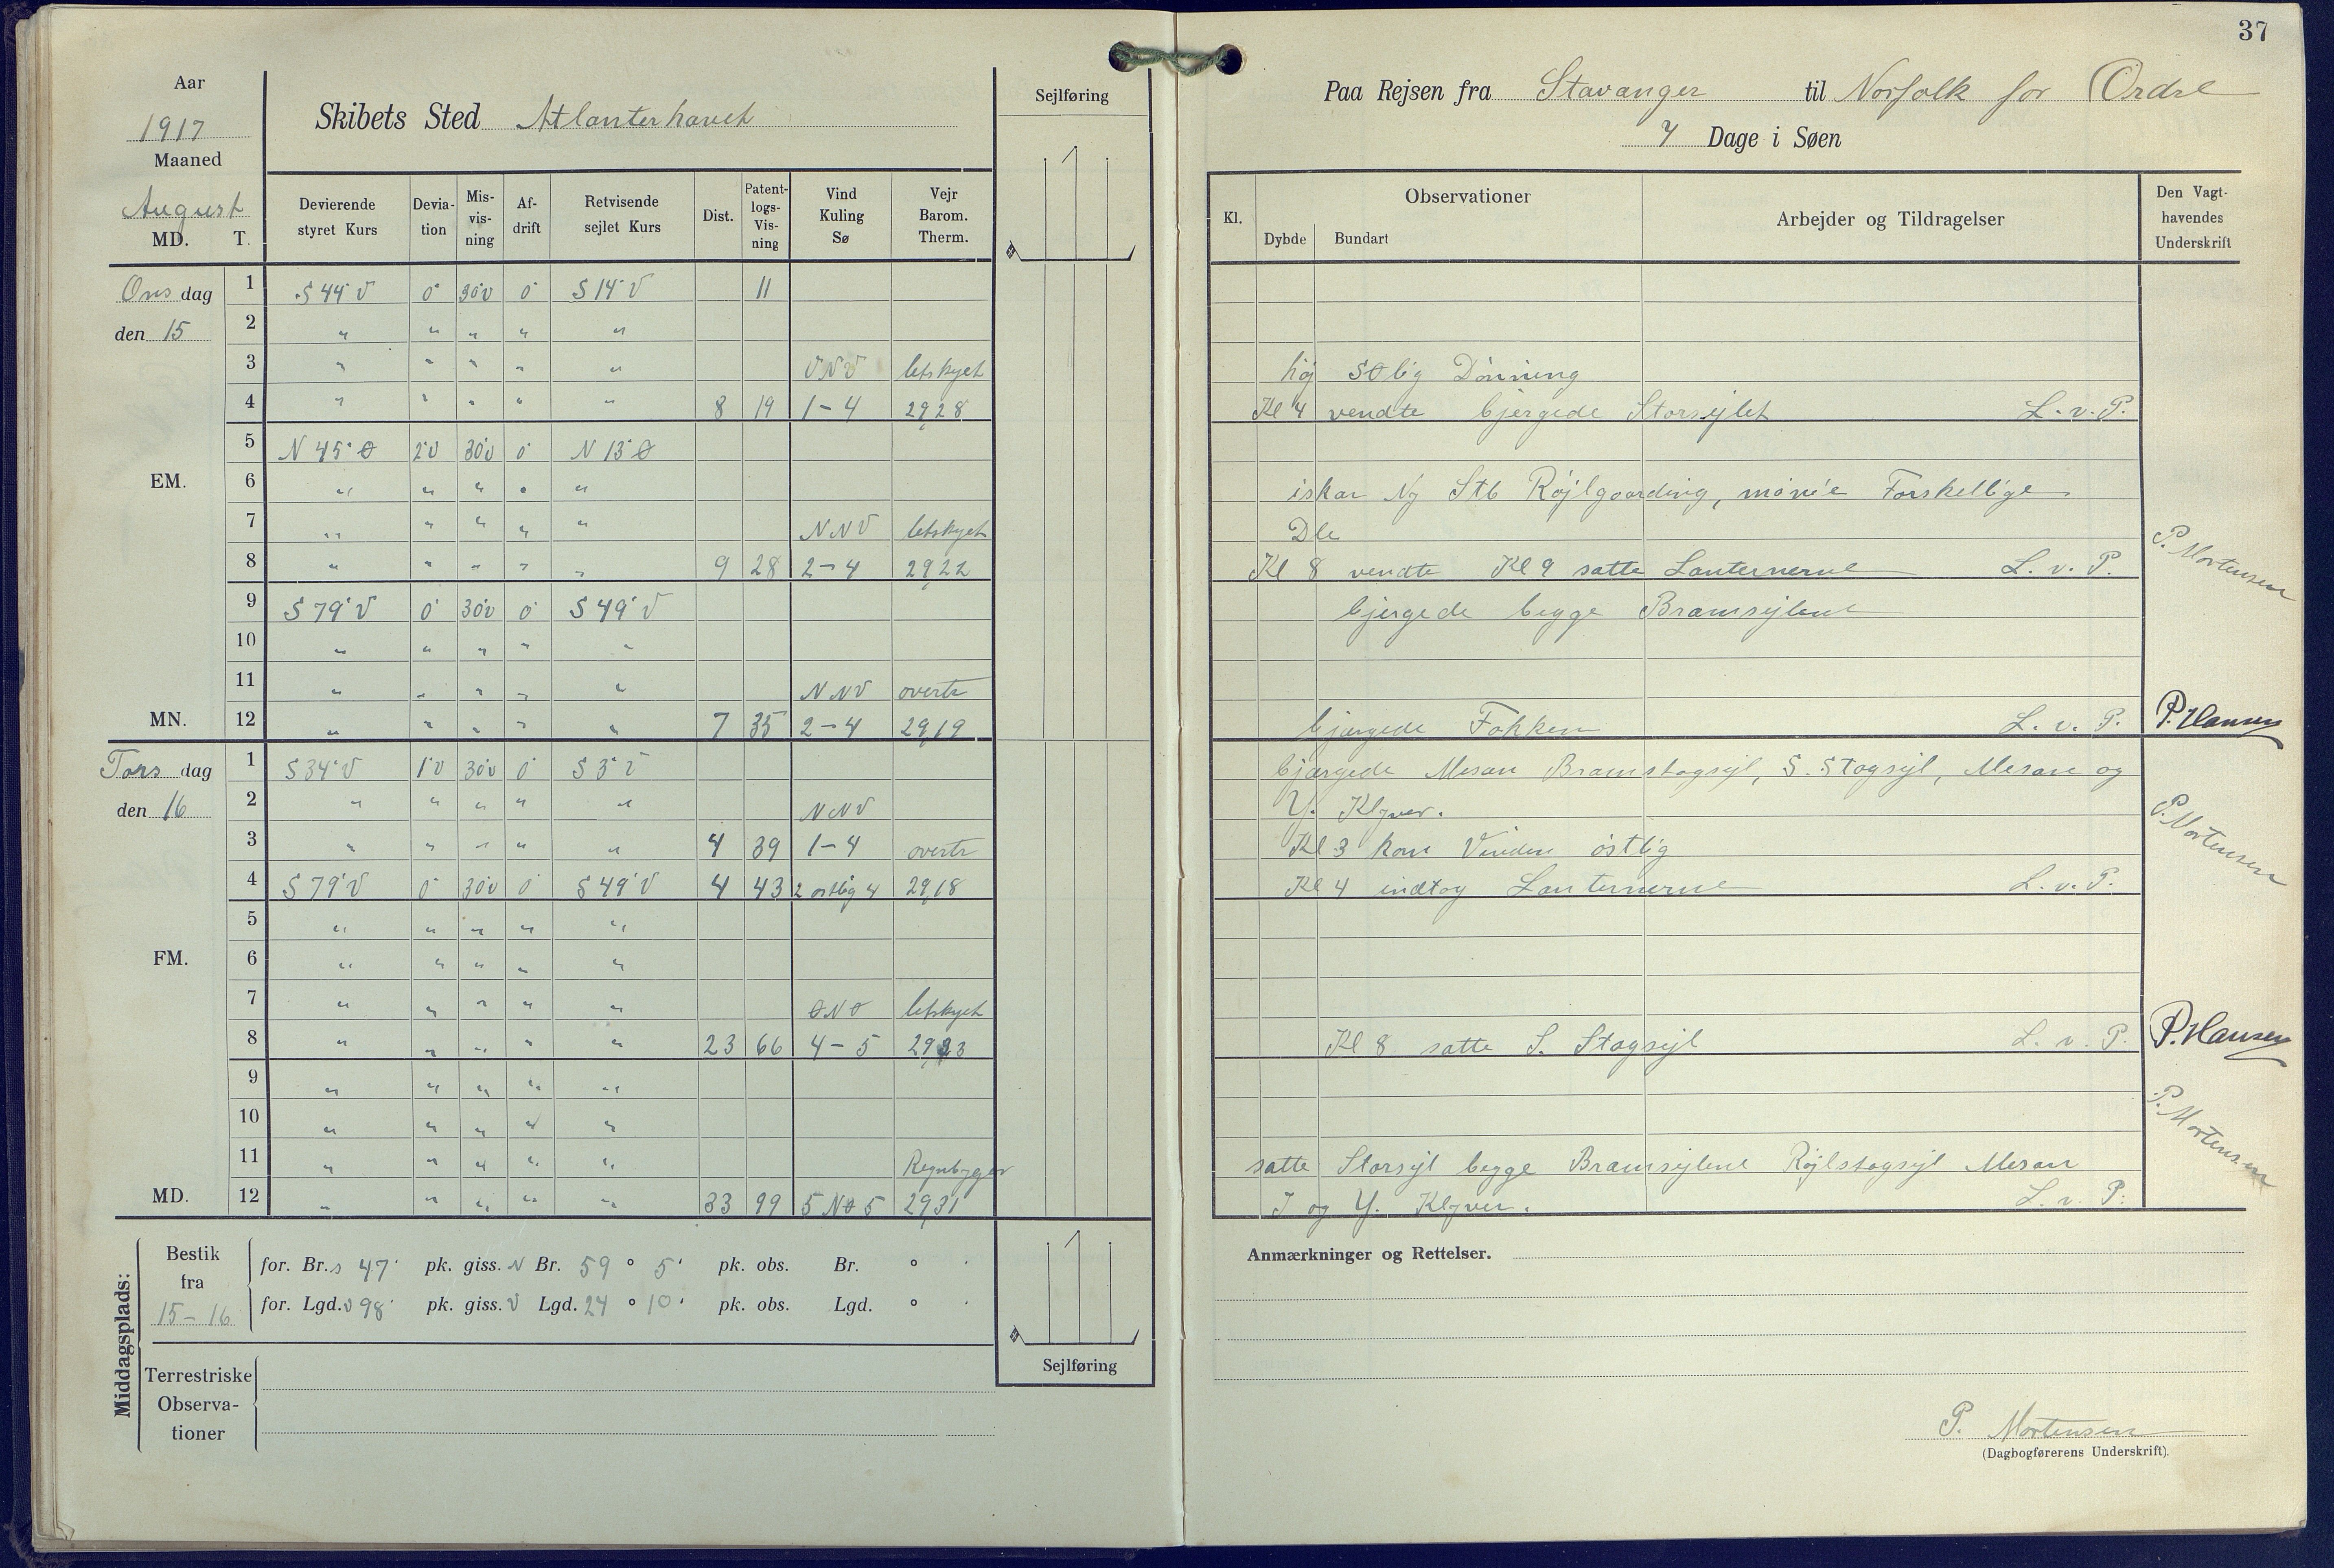 Aar
1917
Maaned
August
MD. T.
Skibets Sted Atlanterhavet
Sejlføring
Devierende styret Kurs | Devia-tion | Mis-vis-ning | Af-drift | Retvisende sejlet Kurs | Dist. | Patent-logs-Vis-ning | Vind Kuling Sø | Vejr Barom. Therm.
Onsdag 1 S 44° V 0° 30°V 0° S 14° V 11
den 15 2 " " " " "
3 " " " " " VNV letskyet
4 " " " " " 8 19 1-4 29,28
5 N 45° Ø 2°V 30°V 0° N 13° Ø
EM. 6 " " " " "
7 " " " " " NNV letskyet
8 " " " " " 9 28 2-4 29,22
9 S 79° V 0° 30°V 0° S 49° V
10 " " " " "
11 " " " " " NNV overtr
MN. 12 " " " " " 7 35 2-4 29,19
Torsdag 1 S 34° V 1°V 30°V 0° S 3° V
den 16 2 " " " " " NNV
3 " " " " " 4 39 1-4 overtr
4 S 79° V 0° 30°V 0° S 49° V 4 43 2 østlig 4 29,18
5 " " " " "
FM. 6 " " " " "
7 " " " " " ØNØ letskyet
8 " " " " " 23 66 4-5 29,23
9 " " " " "
10 " " " " "
11 " " " " " Regnbyger
MD. 12 " " " " " 33 99 5 NØ 5 29,31
Middagsplads:
Bestik fra 15-16
for. Br. S 47' pk. giss. N Br. 59 ° 5' pk. obs. Br. ° '
for. Lgd. V 98' pk. giss. V Lgd. 24 ° 10' pk. obs. Lgd. ° '
Sejlføring
Terrestriske
Observa-
tioner
37
Paa Rejsen fra Stavanger til Norfolk for Ordre
7 Dage i Søen
Kl. | Observationer | Dybde | Bundart | Arbejder og Tildragelser | Den Vagt-havendes Underskrift
høj SØlig Dønning
Kl 4 vendte bjergede Storsejlet L. v. P.
iskar Ny Stb Røjlgaarding, mønie Forskellige
Dle
P. Mortensen
Kl 8 vendte Kl 9 satte Lanternerne L. v. P.
bjergede begge Bramsejlene
bjærgede Fokken L. v. P. P. Hansen
bjærgede Mesan Bramstagsejl, S. Stagsejl, Mesan og
Y. Klyver.
Kl 3 kom Vinden østlig
P. Mortensen
Kl 4 indtog Lanternerne L. v. P.
Kl 8 satte S. Stagsejl L. v. P. P. Hansen
P. Mortensen
satte Storsejl begge Bramsejlene Røjlstagsejl Mesan
J og Y. Klyver. L. v. P.
Anmærkninger og Rettelser.
P. Mortensen
(Dagbogførerens Underskrift).